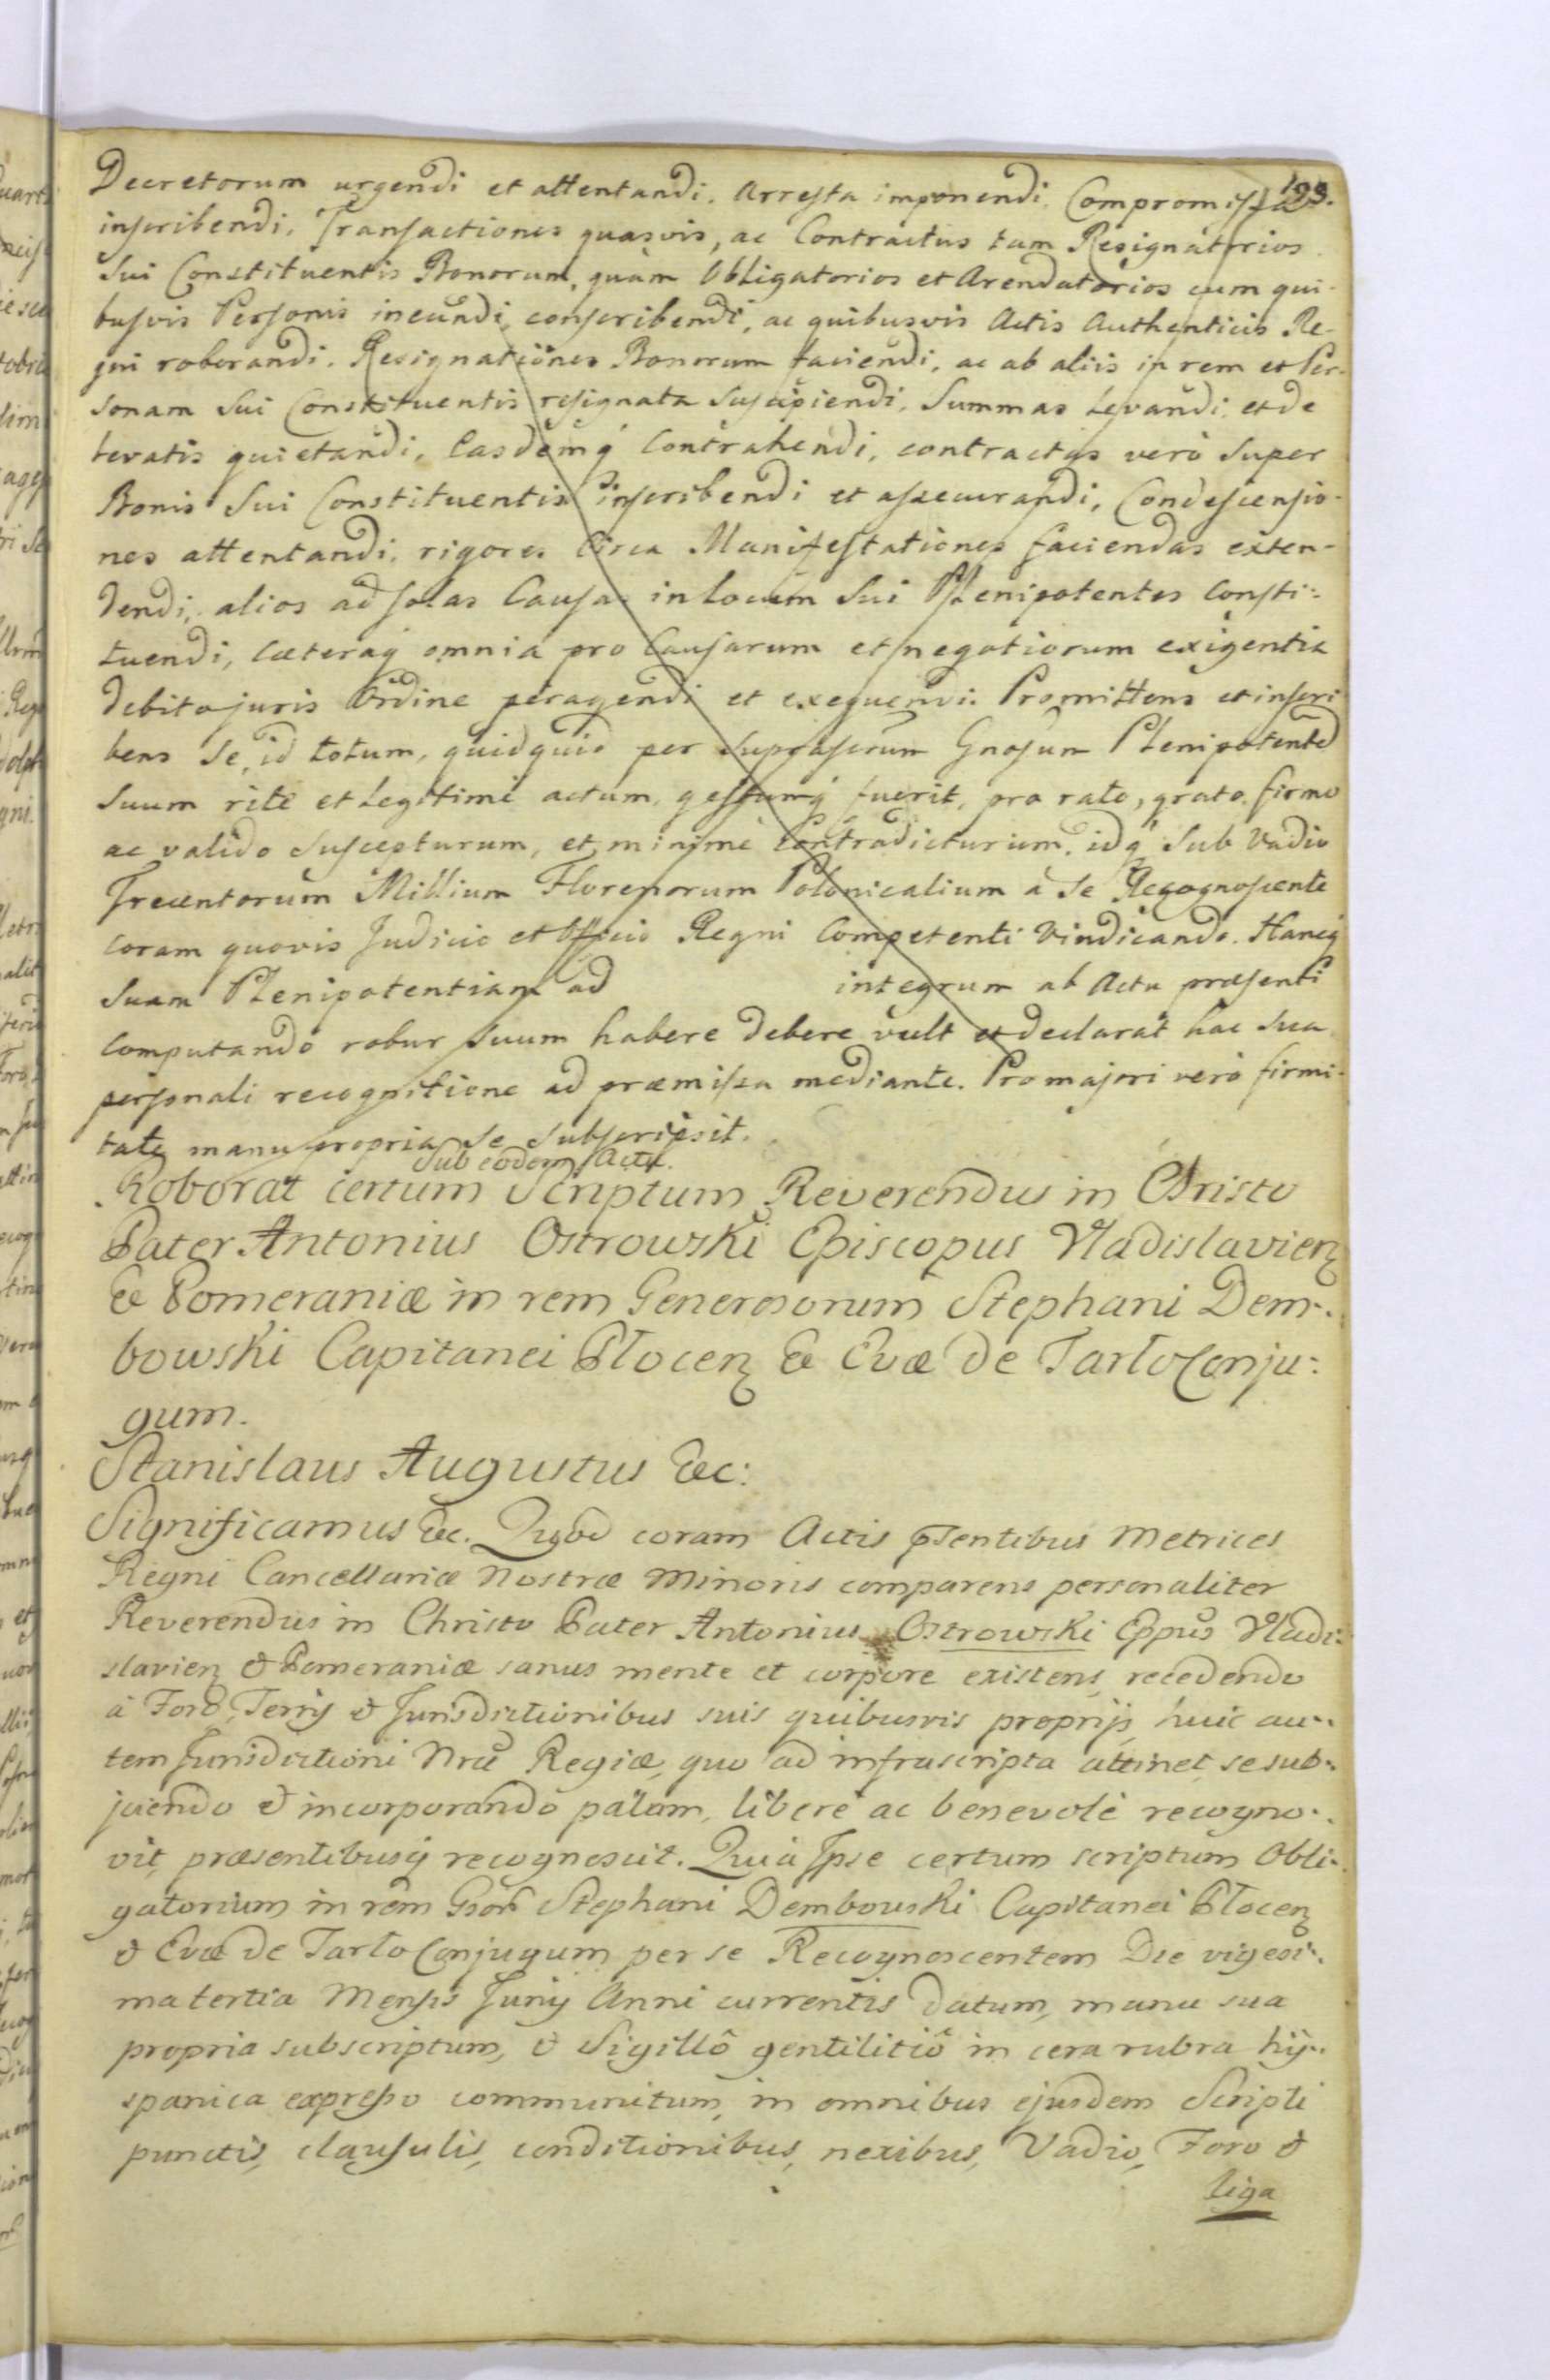 193.
Decretorum urgendi et attentandi. Arresta imponendi. Compromissa
inscribendi. Transactiones quasvis, ac Contractus tam Resignatorios
sui Constituentis Bonorum, quàm Obligatorios et Arendatorios cum qui-
busvis Personis ineundi, conscribendi, ac quibusvis Actis Authenticis Re-
gni roborandi. Resignationes Bonorum faciendi, ac ab aliis in rem et Per-
sonam sui Constituentis resignata suscipiendi, Summas levandi, et de
levatis quietandi, Easdemq́ contrahendi, contractas verò super
Bonis sui Constituentis inscribendi et assecurandi, Condescensio-
nes attentandi, rigores circa Manifestationes faciendas exten-
dendi, alios ad solas Causas in locum sui Plenipotentes consti:
tuendi, cæteraq́ omnia pro Causarum et negotiorum exigentia
debito juris Ordine peragendi et exequendi. Promittens et inscri-
bens se, id totum, quidquid per suprascrum Gnosum Plenipotente͂
suum ritè et legitimè actum, gestumq́ fuerit, pro rato, grato, firmo
ac valido suscepturum, et minimè contradicturum, idq́ sub Vadio
Trecentorum Millium Florenorum Polonicalium à se Recognoscente
coram quovis Judicio et Officio Regni Competenti vindicando. Hancq́
suam Plenipotentiam ad integrum ab Actu præsenti
computando robur suum habere debere vult et declarat hac sua
personali recognitione ad præmissa mediante. Pro majori verò firmi-
tate manu propria se subscripsit.
Sub eodem Actu.
Roborat certum Scriptum Reverendus in Christo
Pater Antonius Ostrowski Episcopus Vladislavien̄
& Pomeraniæ in rem Generosorum Stephani Dem-
bowski Capitanei Płocen̄ & Evæ de Tarło Conju:
gum.
Stanislaus Augustus &c:
Significamus &c. Quod coram Actis p͂sentibus Metrices
Regni Cancellariæ Nostræ Minoris comparens personaliter
Reverendus in Christo Pater Antonius Ostrowski Eppus Vladi:
slavien̄ & Pomeraniæ sanus mente et corpore existens, recedendo
à Foro, Terris & Jurisdictionibus suis quibusvis proprijs, huic au-
tem Jurisdictioni Nræ Regiæ, quo ad infrascripta attinet, se sub-
jiciendo & incorporando palàm, liberè ac benevolè recogno-
vit, præsentibusq́ recognoscit. Quia Ipse certum scriptum Obli-
gatorium in rem Gsor̄ Stephani Dembowski Capitanei Płocen̄
& Evæ de Tarło Conjugum per se Recognoscentem Die vigesi-
ma tertia Mensis Junij Anni currentis datum, manu sua
propria subscriptum, & Sigillô gentilitiô in cera rubra hy-
spanica expresso communitum, in omnibus ejusdem Scripti
punctis, clausulis, conditionibus, nexibus, Vadio, Foro &
liga